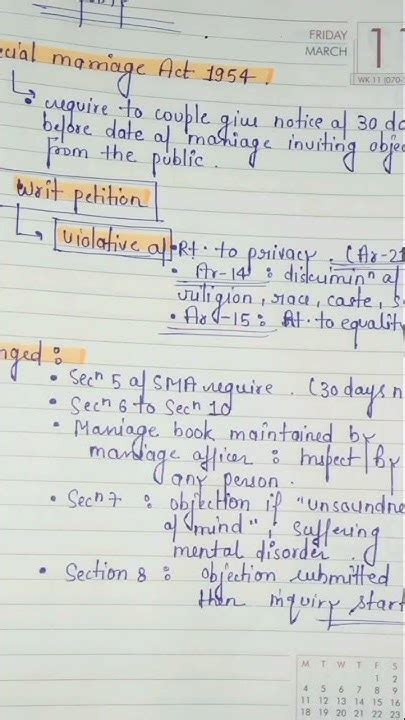 FRIDAY
MARCH
1
WK 11 (070-
ecial marriage Act 1954.
require to couple give notice of 30 da
before date of marriage inviting objec
from the public.
Writ petition
violative of • Rt. to privacy. (Ar-21
• Ar-14 : discriminⁿ of
religion, race, caste, s
• Ar-15 : Rt. to equality
nged :
• Secⁿ 5 of SMA require. (30 days n
• Secⁿ 6 to Secⁿ 10
• Marriage book maintained by
marriage officer : Inspect by
any person.
• Secⁿ 7 : objection if "unsoundne
of mind", suffering
mental disorder.
• Section 8 : objection submitted
then inquiry start
M T W T F S
1 2
4 5 6 7 8 9
11 12 13 14 15 16
18 19 20 21 22 23